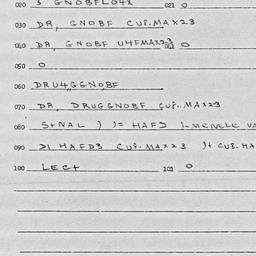 020 3 GNOBFLO4X 021 0
030 DR, GNOBF CUP.MAX23
040 DR, GNOBF U4FMAX23 0
050 0
060 DRU4GGNOBF
070 DR, DRUGGNOBF CUP..MAX23
080 S+NAL ) )= HAFD )-MENELE
090 HAFD3 CUP.MAX23 )+ CUB.MA
100 LEC+ 101 0